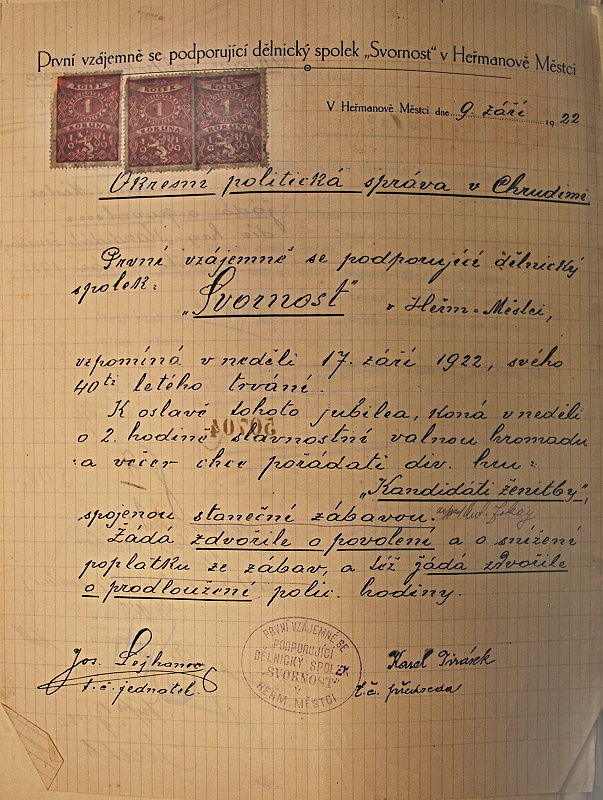 První vzájemně se podporující dělnický spolek „Svornost" v Heřmanově Městci
KOLEK KOLEK KOLEK
1 1 1
KORUNA KORUNA KORUNA
1919 1919 1919
V Heřmanově Městci dne 9. září 1922
Okresní politická správa v Chrudimi
První vzájemně se podporující dělnický
spolek:
„Svornost" v Heřm=Městci,
vzpomíná v neděli 17. září 1922, svého
40ti letého trvání.
K oslavě tohoto jubilea, koná v neděli
50704
o 2. hodině slavnostní valnou hromadu
a večer chce pořádati div. hru:
„Kandidáti ženitby",
spojenou staneční zábavou.
Žádá zdvořile o povolení a o snížení
poplatku ze zábav, a též žádá zdvořile
o prodloužení polic. hodiny.
PRVNÍ VZÁJEMNĚ SE
PODPORUJÍCÍ
DĚLNICKÝ SPOLEK
„SVORNOST"
v
HEŘM. MĚSTCI
Jos.
t.č. jednatel.
Karel
t.č. předseda